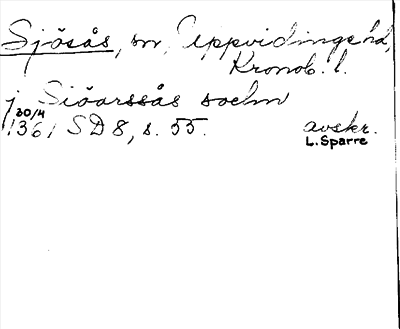 Sjösås, sn, Uppvidinge hd,
Kronob. l.
j Siöarssås sochn
30/4
1361 SD 8, s. 55. avskr.
L. Sparre